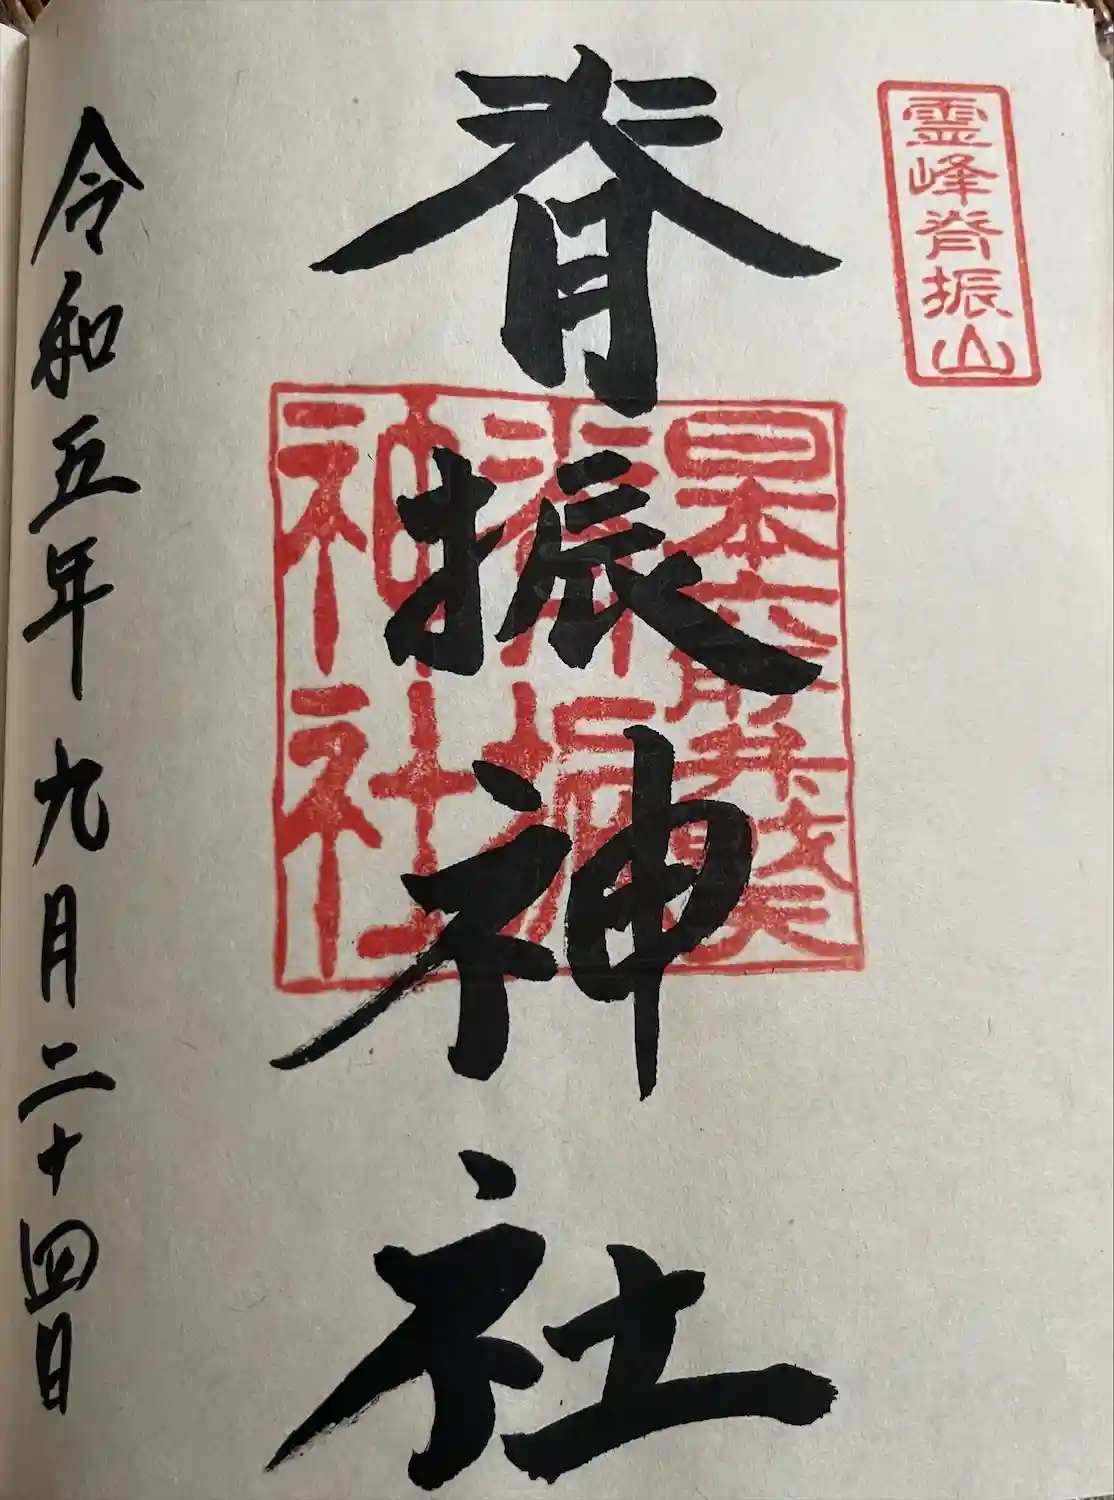 霊峰脊振山
脊振神社
脊振
神社
令和五年九月二十四日